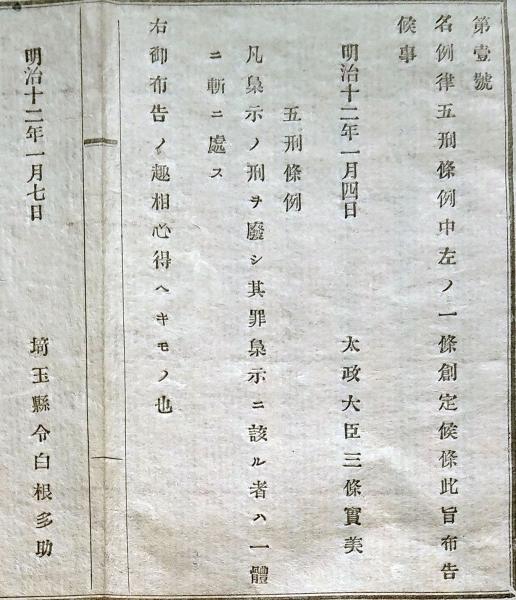 第壹號
名例律五刑條例中左ノ一條創定候條此旨布告
候事
明治十二年一月四日　太政大臣三條實美
五刑條例
凡梟示ノ刑ヲ廢シ其罪梟示ニ該ル者ハ一體
ニ斬ニ處ス
右御布告ノ趣相心得ヘキモノ也
明治十二年一月七日　埼玉縣令白根多助